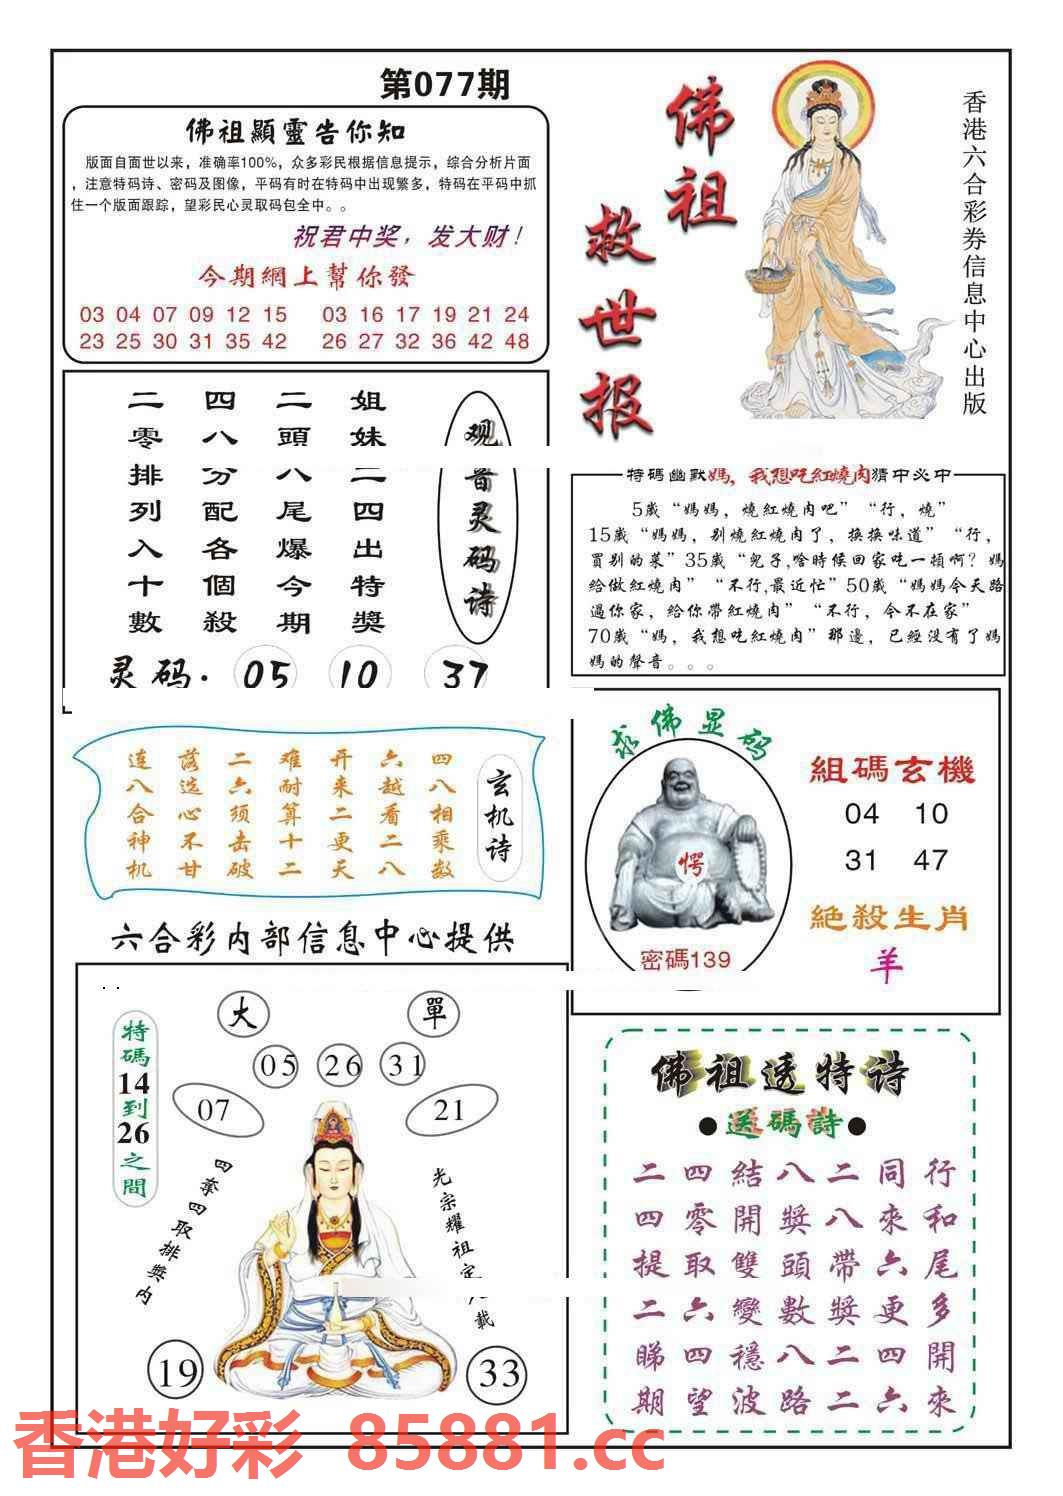 第077期
佛祖顯靈告你知
版面自面世以来，准确率100%，众多彩民根据信息提示，综合分析片面
，注意特码诗、密码及图像，平码有时在特码中出现繁多，特码在平码中抓
住一个版面跟踪，望彩民心灵取码包全中。。
祝君中奖，发大财！
今期網上幫你發
03 04 07 09 12 15 03 16 17 19 21 24
23 25 30 31 35 42 26 27 32 36 42 48
佛祖
救世报
香港六合彩券信息中心出版
观音灵码诗
姐妹二四出特獎
二頭八尾爆今期
四八分配各個殺
二零排列入十數
灵码· 05 10 37
特碼幽默媽，我想吃紅燒肉猜中必中
5歲“媽媽，燒紅燒肉吧”“行，燒”
15歲“媽媽，别燒紅燒肉了，换换味道”“行，
買别的菜”35歲“兒子,啥時候回家吃一頓啊？媽
給做紅燒肉”“不行,最近忙”50歲“媽媽今天路
過你家，給你帶紅燒肉”“不行，今不在家”
70歲“媽，我想吃紅燒肉”那邊，已經没有了媽
媽的聲音。。。
玄机诗
四八相乘数
六越看二八
开来二更天
难耐算十二
二六须击破
落选心不甘
连八合神机
求佛显码
愕
密碼139
組碼玄機
04 10
31 47
絕殺生肖
羊
六合彩内部信息中心提供
大 單
05 26 31
07 21
特碼14到26之間
四奪四取排獎内
光宗耀祖定
載
19 33
佛祖透特诗
●送碼詩●
行和尾多開來
同來六更四六
二八帶獎二二
八獎頭數八路
結開雙變穩波
四零取六四望
二四提二睇期
香港好彩 85881.cc